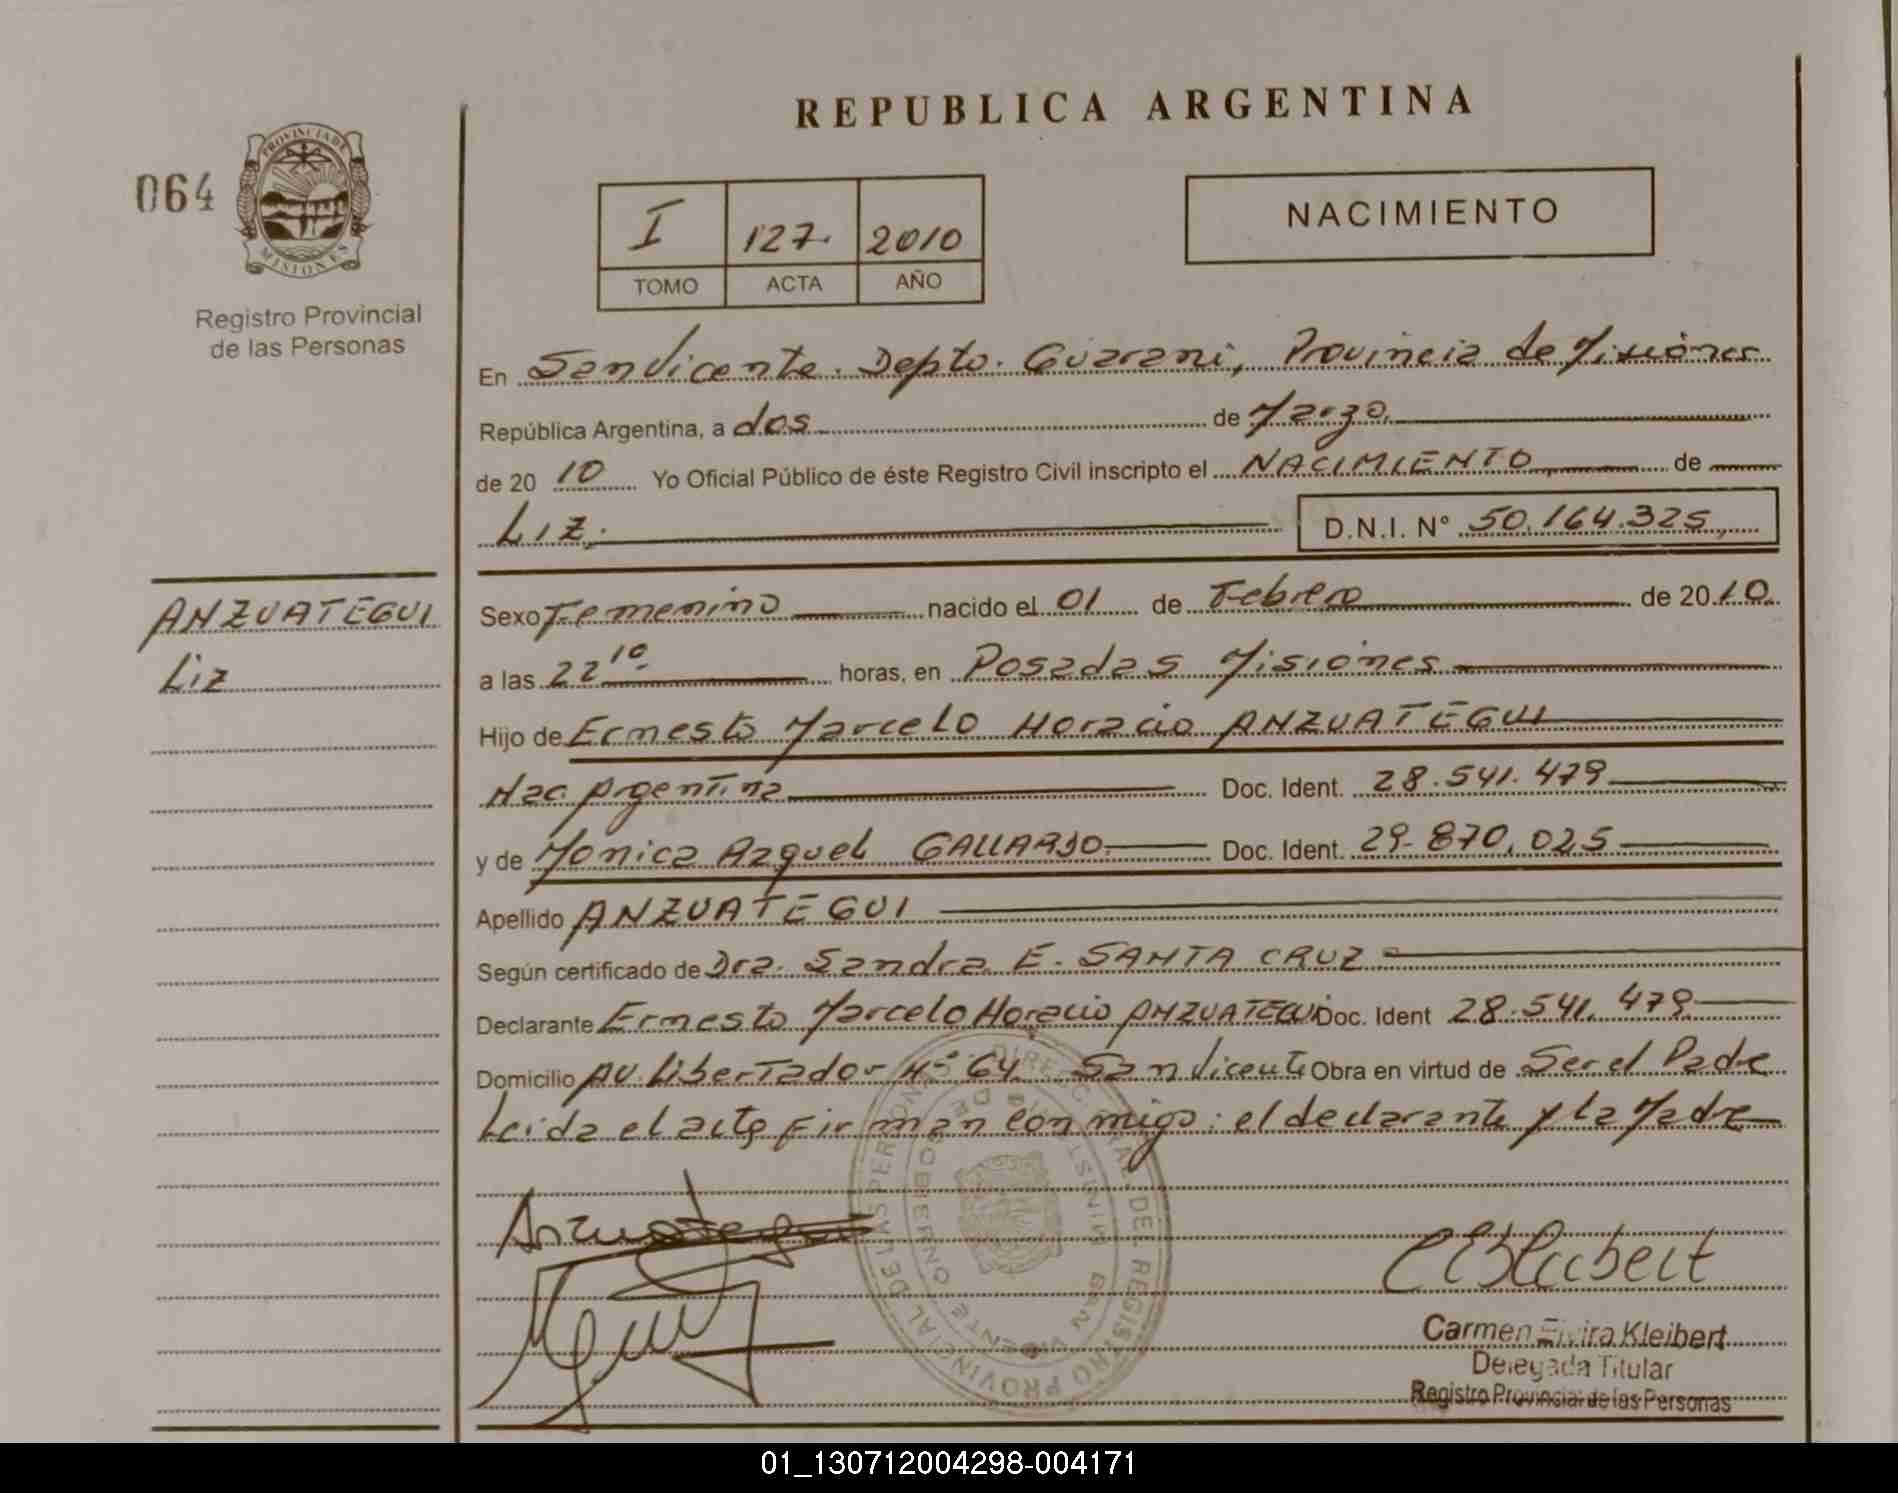 REPUBLICA ARGENTINA
064
PROVINCIA DE
MISIONES
Registro Provincial
de las Personas
I 127. 2010
TOMO ACTA AÑO
NACIMIENTO
En San Vicente. Depto. Guarani, Provincia de Misiones
República Argentina, a dos de Marzo
de 20 10 Yo Oficial Público de éste Registro Civil inscripto el NACIMIENTO de
Liz. D.N.I. N° 50.164.325
ANZUATEGUI
Liz
Sexo Femenino nacido el 01 de Febrero de 20 10
a las 22 10 horas, en Posadas Misiones
Hijo de Ernesto Marcelo Horacio ANZUATEGUI
Nac. Argentina Doc. Ident. 28.541.479
y de Monica Raquel GALLARDO. Doc. Ident. 29.870.025
Apellido ANZUATEGUI
Según certificado de Dra. Sandra E. SANTA CRUZ
Declarante Ernesto Marcelo Horacio ANZUATEGUI Doc. Ident 28.541.479
Domicilio AV. Libertador N° 64 San Vicente Obra en virtud de Ser el Padre
Leida el acta firman conmigo: el declarante y la Madre
Anzuategui
DIRECC. GRAL. DEL REGISTRO PROVINCIAL DE LAS PERSONAS
MINIST. DE GOBIERNO
SAN VICENTE
Carmen Elvira Kleibert
Delegada Titular
Registro Provincial de las Personas
01_130712004298-004171